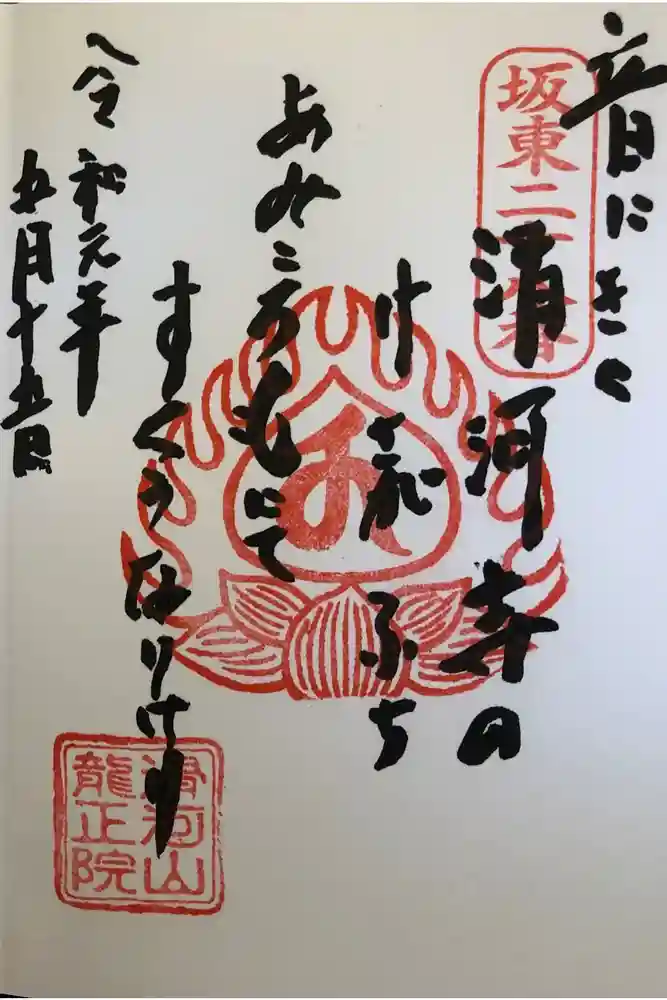 坂東二十八番
音にきく
滑河寺の
け ふち
あみころもにて
すくうなりけり
令和元年
五月十五日
滑河山
龍正院